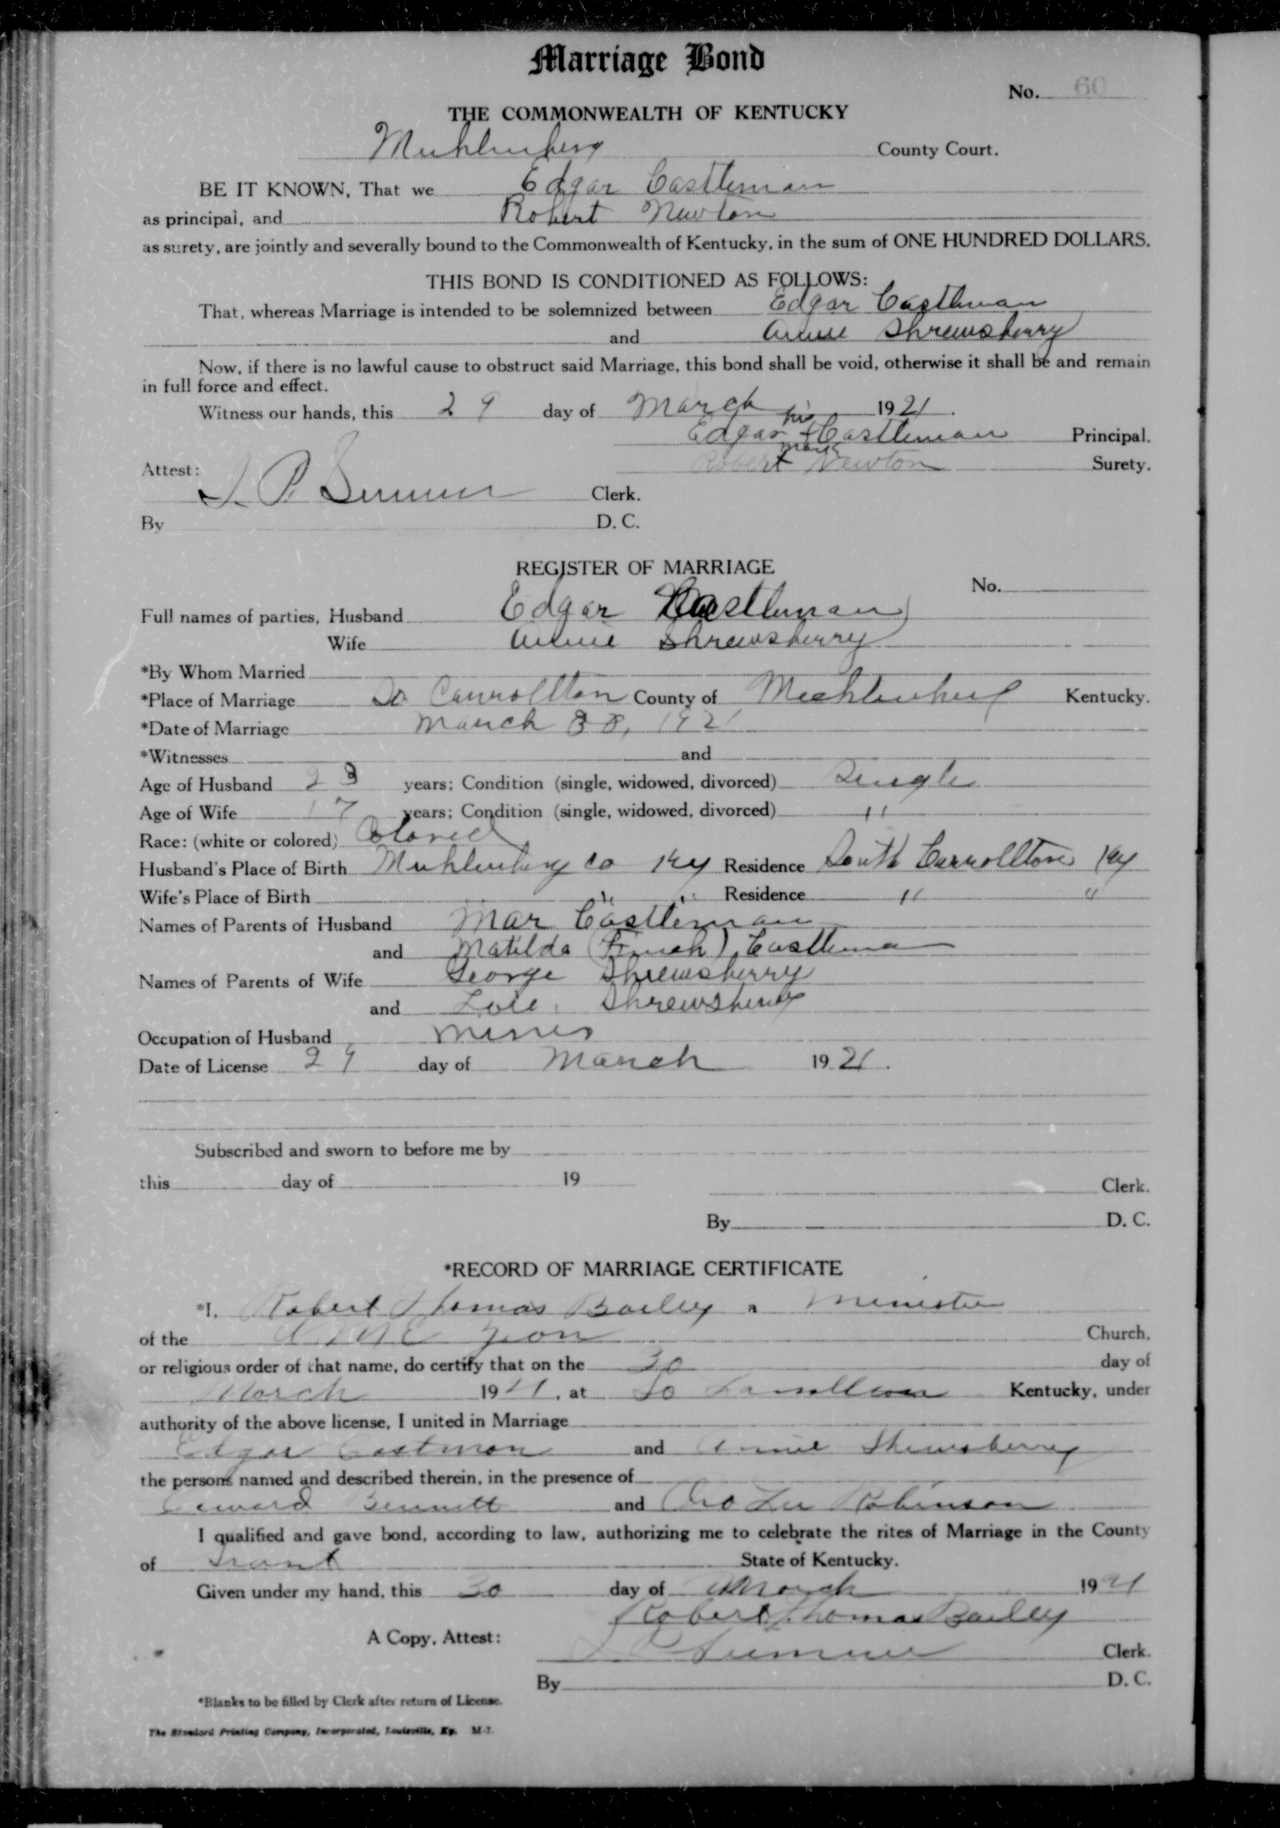 Marriage Bond
No. 60
THE COMMONWEALTH OF KENTUCKY
Muhlenberg County Court.
BE IT KNOWN, That we Edgar Castleman
as principal, and Robert Newton
as surety, are jointly and severally bound to the Commonwealth of Kentucky, in the sum of ONE HUNDRED DOLLARS.
THIS BOND IS CONDITIONED AS FOLLOWS:
That, whereas Marriage is intended to be solemnized between Edgar Castleman
and Annie Shrewsberry
Now, if there is no lawful cause to obstruct said Marriage, this bond shall be void, otherwise it shall be and remain
in full force and effect.
Witness our hands, this 29 day of March 1921.
Edgar his x mark Castleman Principal.
Attest: Robert Newton Surety.
Clerk.
By D. C.
REGISTER OF MARRIAGE
No.
Full names of parties, Husband Edgar Castleman
Wife Annie Shrewsberry
*By Whom Married
*Place of Marriage So Carrollton County of Muhlenberg Kentucky.
*Date of Marriage March 1921
*Witnesses and
Age of Husband 23 years; Condition (single, widowed, divorced) Single
Age of Wife 17 years; Condition (single, widowed, divorced) "
Race: (white or colored) Colored
Husband's Place of Birth Muhlenberg Co Ky Residence South Carrollton Ky
Wife's Place of Birth " " Residence " "
Names of Parents of Husband Mar Castleman
and Matilda Castleman
Names of Parents of Wife George Shrewsberry
and Shrewsberry
Occupation of Husband Miner
Date of License 29 day of March 1921.
Subscribed and sworn to before me by
this day of 19 Clerk.
By D. C.
*RECORD OF MARRIAGE CERTIFICATE
*I, Robert Thomas Bailey a Minister
of the A. M. E Zion Church,
or religious order of that name, do certify that on the 30 day of
March 1921, at So Carrollton Kentucky, under
authority of the above license, I united in Marriage
Edgar Castman and Annie Shewsberry
the persons named and described therein, in the presence of
Bennett and Robinson
I qualified and gave bond, according to law, authorizing me to celebrate the rites of Marriage in the County
of State of Kentucky.
Given under my hand, this 30 day of March 1921
Robert Thomas Bailey
A Copy, Attest: Clerk.
By D. C.
*Blanks to be filled by Clerk after return of License.
The Standard Printing Company, Incorporated, Louisville, Ky. M-7.